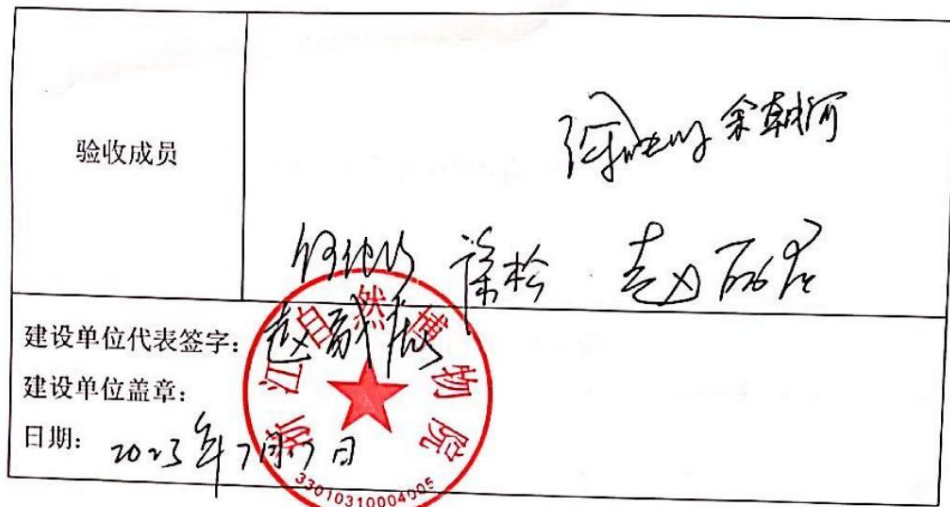 验收成员
余朝河
徐松 赵丽君
建设单位代表签字:
建设单位盖章:
日期: 2023年7月7日
浙江自然博物院
33010310004005